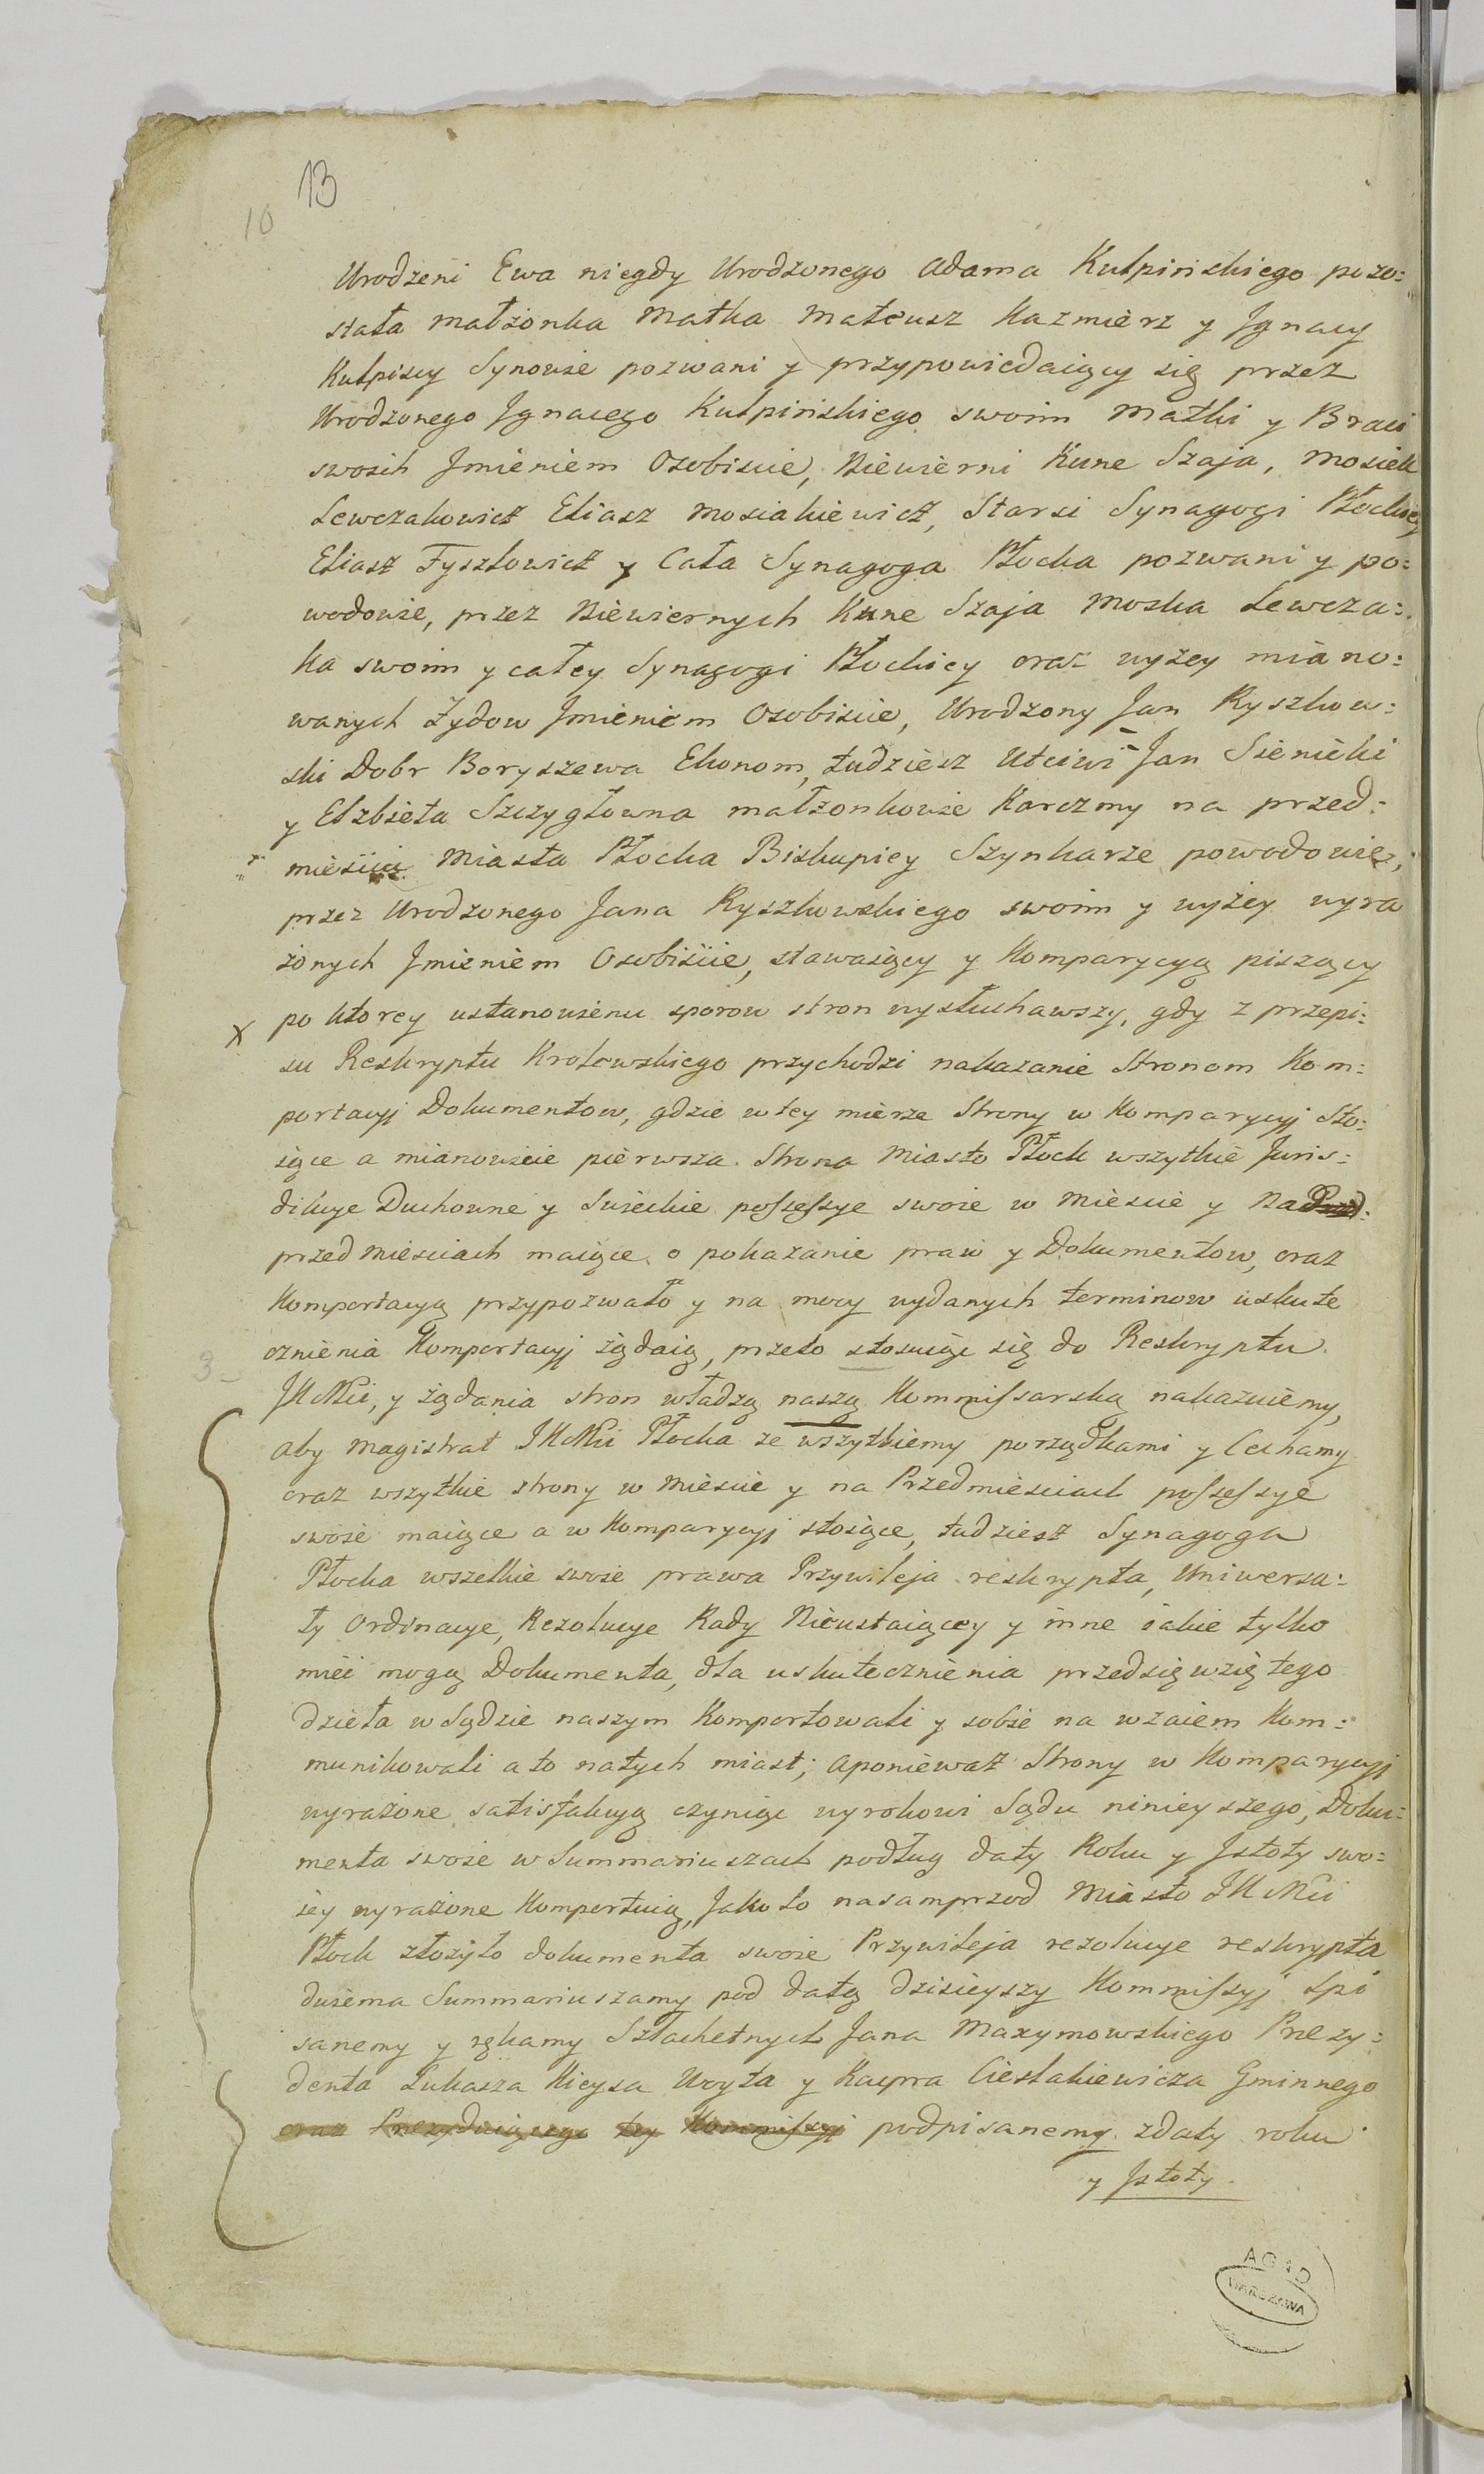 13
10
Urodzeni Ewa niegdy Urodzonego Adama Kulpińskiego pozo:
stała małżonka Matka Mateusz Kazmierz y Jgnacy
Kulpiscy Synowie pozwani y przypowiedaiący się przez
Urodzonego Jgnacego Kulpińskiego swoim Matki y Braci
swoich Jmieniem Osobiscie, Niewierni Kune Szaja, Mosiek
Lewczakowicz Eliasz Mosiakiewicz, Starsi Synagogi Płockiey
Eliasz Fyszlowicz y Cała Synagoga Płocka pozwani y po:
wodowie, przez Niewiernych Kune Szaja Moska Lewcza:
ka swoim y całey Synagogi Płockiey oraz wyzey miano:
wanych Żydow Jmieniem Osobiscie, Urodzony Jan Ryszkow:
ski Dobr Boryszewa Ekonom, tudziesz Utciwi Jan Sienicki
y Elzbieta Szczygłowna małżonkowie Karczmy na przed:
miesciu Miasta Płocka Biskupiey Szynkarze powodowie,
przez Urodzonego Jana Ryszkowskiego swoim y wyżey wyra
żonych Jmieniem Osobiscie, stawaiący y Komparycyą piszący
X po ktorey ustanowieniu sporow stron wysłuchawszy, gdy z przepi:
su Reskryptu Krolewskiego przychodzi nakazanie Stronom Kom:
portacyj Dokumentow, gdzie w tey mierze Strony w Komparycyj sto:
iące a mianowicie pierwsza Strona Miasto Płock wszytkie Juris:
dikcye Duchowne y Swieckie possessye swoie w Miescie y Na Przed:
przedmiesciach maiące o pokazanie praw y Dokumentow, oraz
Komportacyą przypozwało y na mocy wydanych terminow uskute
cznienia Komportacyj żądaią, przeto stosuiąc się do Reskryptu
3
JKMci, y żądania stron władzą naszą Kommissarską nakazuiemy,
aby Magistrat JKMci Płocka ze wszytkiemy porządkami y Cechamy
oraz wszytkie strony w Miescie y na Przedmiesciach possessye
swoie maiące a w Komparycyj stoiące, tudziesz Synagoga
Płocka wszelkie swoie prawa Przywileja reskrypta, Uniwersa:
ły Ordinacye, Rezolucye Rady Nieustaiącey y inne iakie tylko
mieć mogą Dokumenta, dla uskutecznienia przedsięwziętego
dzieła w Sądzie naszym Komportowali y sobie na wzaiem Kom:
munikowali a to natych miast; aponieważ Strony w Komparycyj
wyrażone satisfakcyą czyniąc wyrokowi Sądu ninieyszego, Doku:
menta swoie w Summariuszach podług daty Roku y Jstoty swo:
iey wyrażone Komportuią, Jako to nasamprzod Miasto JKMci
Płock złożyło dokumenta swoie Przywileja rezolucye reskrypta
dwiema Summariuszamy pod datą dzisieyszy Kommissyj Spi
sanemy y rękamy Szlachetnych Jana Maxymowskiego Prezy:
denta Łukasza Kicysa Woyta y Kacpra Cieslakiewicza Gminnego
oraz Prezyduiącego tey Kommissyj podpisanemy z daty roku
y Jstoty.
AGAD
WARSZAWA